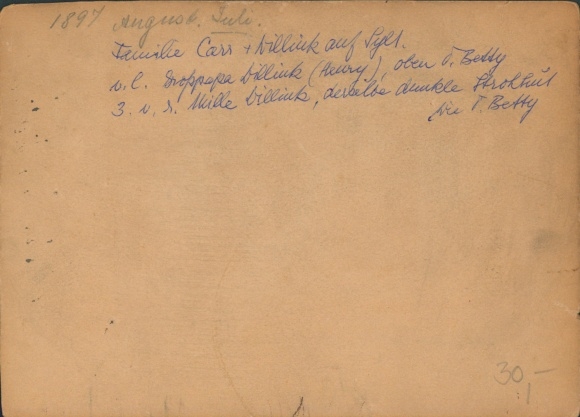 1897 August. Juli.
Familie Carr + Willink auf Sylt.
v. l. Groppapa Willink (Henry), oben T. Betty
3. v. r. Mille Willink, derselbe dunkle Strohhut
wie T. Betty
30,-